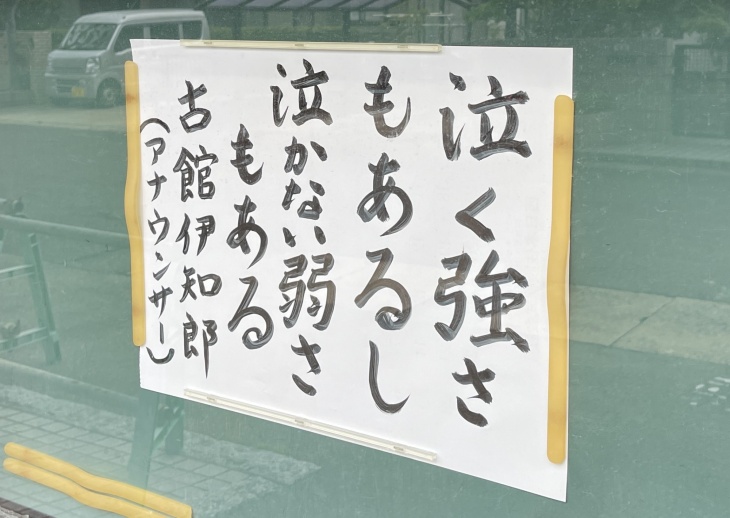 泣く強さ
もあるし
泣かない弱さ
もある
古館伊知郎
(アナウンサー)